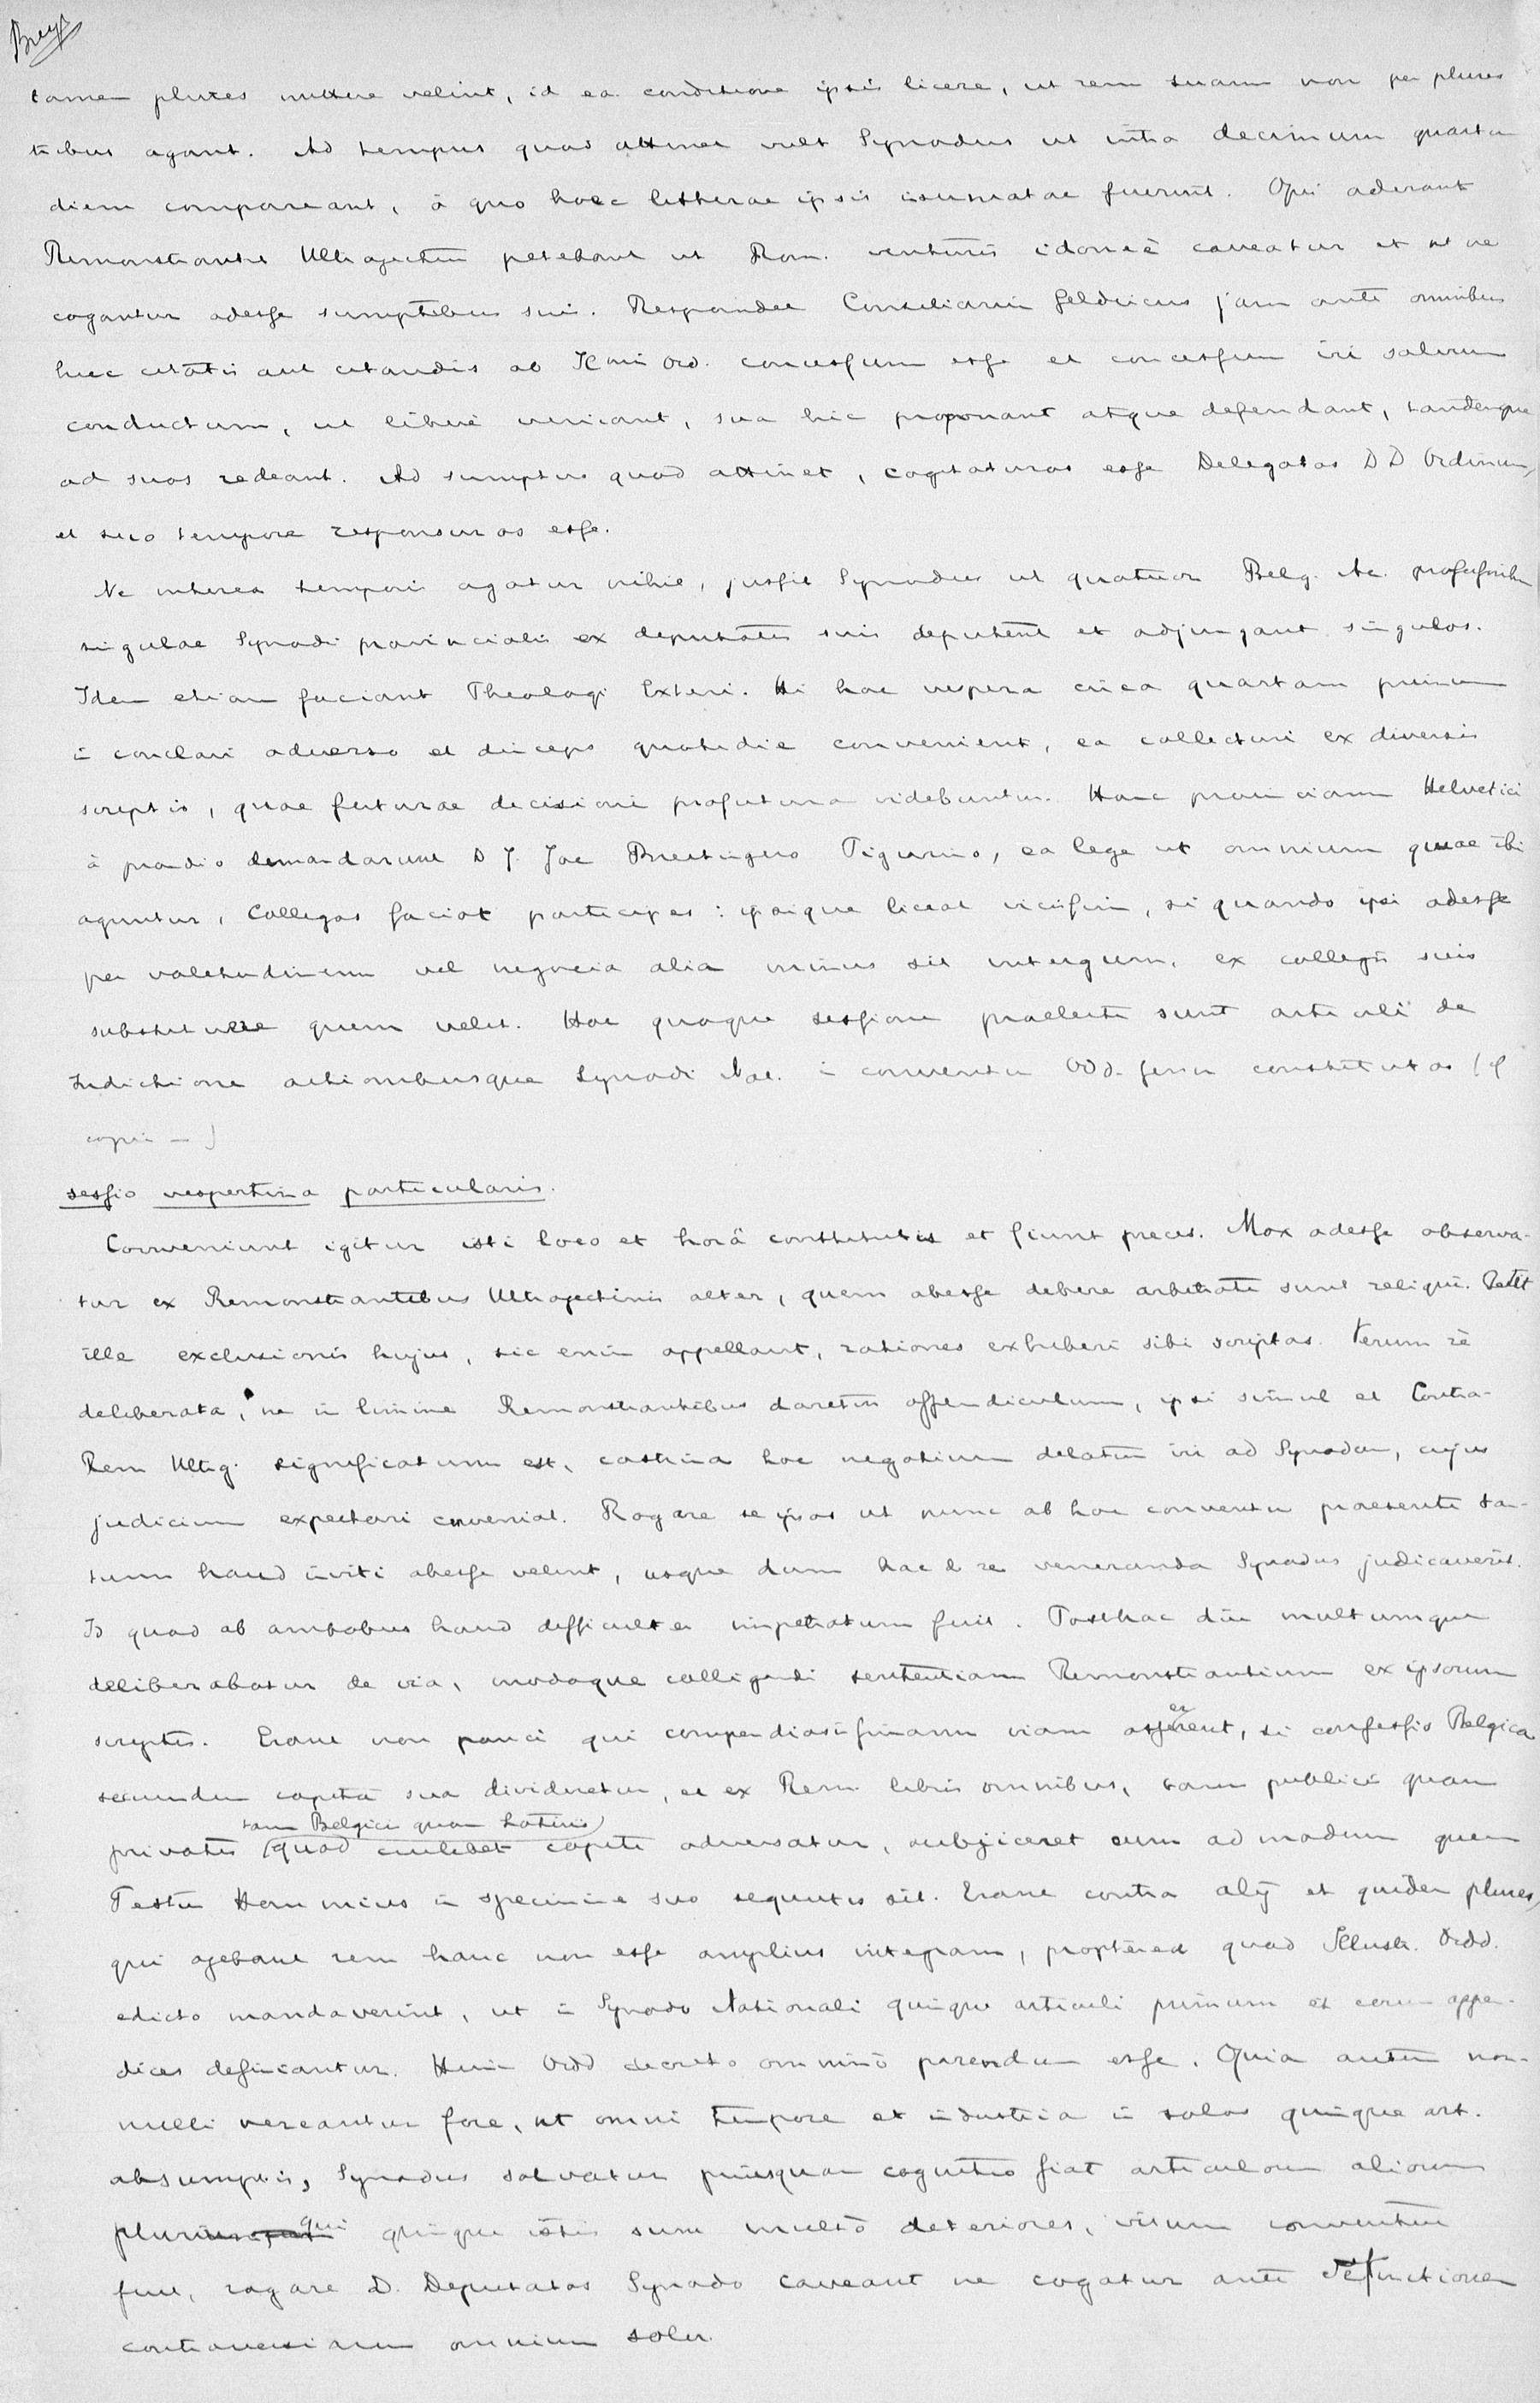 Brey
tamen plures mittere velint, id ea conditione ipsis licere, ut rem suam non per plures
tribus agant. Ad tempus quod attinet vult Synodus ut intra decimum quartu
diem compareant, à quo haec litterae ipsis insinuatae fuerint. Qui aderant
Remonstrantes Ultrajectini petebant ut Rem. venturis idoneè caveatur et ut ne
cogantur adesse sumptibus suis. Respondet Consiliarius Geldricus jam ante omnibus
huc citatis aut citandis ab Ill mis Ord. concessum esse et concessum iri salvum
conductum, ut liberè veniant, sua hic proponant atque defendant, tandemque
ad suos redeant. Ad sumptus quod attinet, cogitaturos esse Delegatos DD Ordinum,
et suo tempore responsuros esse.
Ne interea temporis agatur nihil, jussit Synodus ut quatuor Belg. Ac. professoribus
singulae Synodi provincialis ex deputatis suis deputent et adjungant singulos.
Idem etiam faciant Theologi Exteri. Hi hac vespera circa quartam primum
in conclavi adverso et deinceps quotidie convenient, ea collecturi ex diversis
scriptis, quae futurae decisioni profutura videbuntur. Hanc provinciam Helvetici
à prandio demandarunt D J. Jac Breitingero Tigurino, ea lege ut omnium quae ibi
aguntur, Collegas faciat participes: ipsique liceat vicissim, si quando ipsi adesse
per valetudinem vel negocia alia minus sit integrum, ex collegis suis
substituere quem velit. Hac quoque sessione praelecti sunt articuli de
Indictione actionibusque Synodi Nat. in conventu Odd. Gener constitutos (cf
copie — )
sessio vespertina particularis.
Conveniunt igitur isti loco et horâ constitutis et fiunt preces. Mox adesse observa-
tur ex Remonstrantibus Ultrajectinis alter, quem abesse debere arbitrati sunt reliqui. Petit
ille exclusionis hujus, sic enim appellant, rationes exhiberi sibi scriptas. Verum rè
deliberata, ne in limine Remonstrantibus daretur offendiculum, ipsi simul et Contra-
Rem Ultraj. significatum est, castina hoc negotium delatum iri ad Synodum, cujus
judicium expectari conveniat. Rogare se ipsos ut nunc ab hoc conventu praesenti tan-
tum haud inviti abesse velint, usque dum hac de re veneranda Synodus judicaverit.
Id quod ab ambobus haud difficulter impetratum fuit. Posthac diu multumque
deliberabatur de via, modoque colligendi sententiam Remonstrantium ex ipsorum
scriptis. Erant non pauci qui compendiosissimam viam assererent, si confessio Belgica
secundum capita sua divideretur, et ex Rem. libris omnibus, tam publicis quam
tam Belgicis quam Latinis)
privatis (quod cuilibet capiti adversatur, subjiceret eum ad modum quem
Festus Hommius in specimine suo sequutus sit. Erant contra alij et quidem plures,
qui agebant rem hanc non esse amplius integram, proptereà quod Illustr. Ordd.
edicto mandaverint, ut in Synodo Nationali quinque articuli primum et eorum appen-
dices definiantur. Huic Ordd decreto omninò parendum esse. Quia autem non-
nulli vereantur fore, ut omni tempore et industria in solos quinque art.
absumptis, Synodus solvatur priusquam cognitio fiat articulorum aliorum
plurium qui quinque istis sunt multò deteriores, visum conventui
fuit, rogare D. Deputatos Synodo caveant ne cogatur ante definitionem
controversiarum omnium solvi.